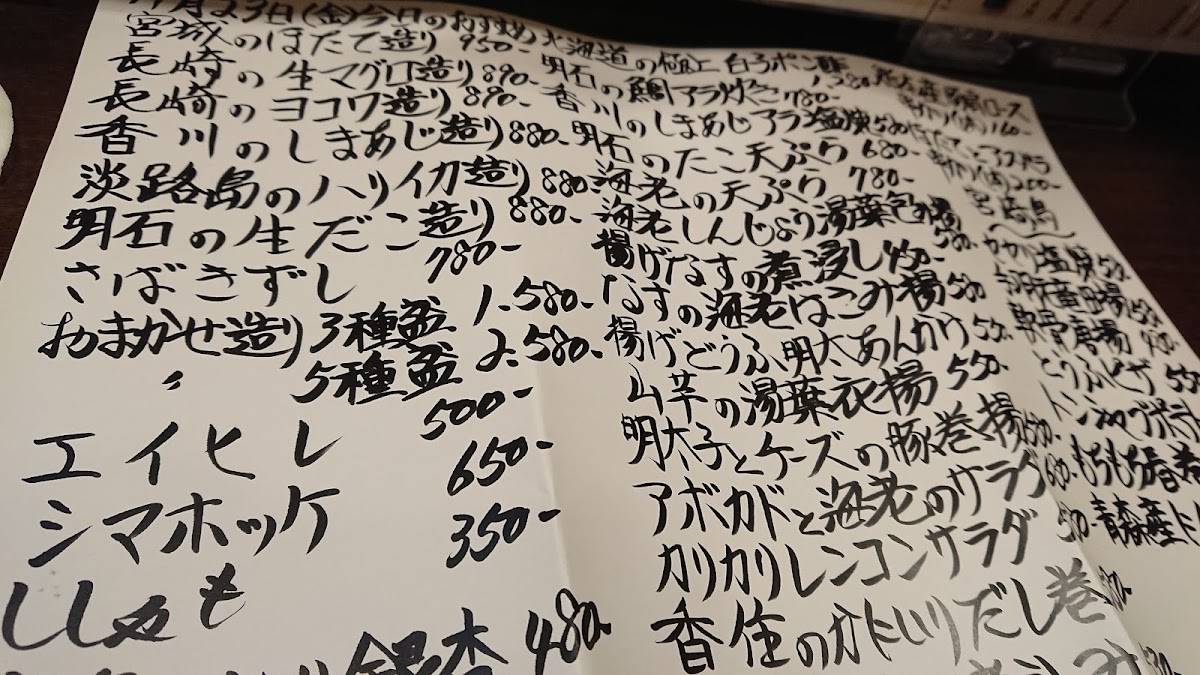 11月23日(金)今日のおすすめ
宮城のほたて造り 950-
長崎の生マグロ造り 890-
長崎のヨコワ造り 890-
香川のしまあじ造り 880-
淡路島のハリイカ造り 880-
明石の生だこ造り 880-
さばきずし 780-
おまかせ造り3種盛 1.580-
〃 5種盛 2.580-
エイヒレ 500-
シマホッケ 650-
ししゃも 350-
銀杏 480-
北海道の極上白子ポン酢 1.380-
明石の鯛アラ炊き 780-
香川のしまあじアラ塩焼 580-
明石のたこ天ぷら 680-
海老の天ぷら 780-
海老しんじょう湯葉包み揚 580-
揚げなすの煮浸し 450-
なすの海老はさみ揚 580
揚げどうふ明太あんかけ 550-
山芋の湯葉衣揚 550-
明太子とチーズの豚巻揚 550-
アボカドと海老のサラダ 680-
カリカリレンコンサラダ 580-
香住のかに入りだし巻
串カツ(1本) 160-
アスパラ
串カツ(1本) 200-
宮崎鳥
塩焼 550-
唐揚 550-
軟骨唐揚
とうふピザ 550
もちもち春巻
青森産に